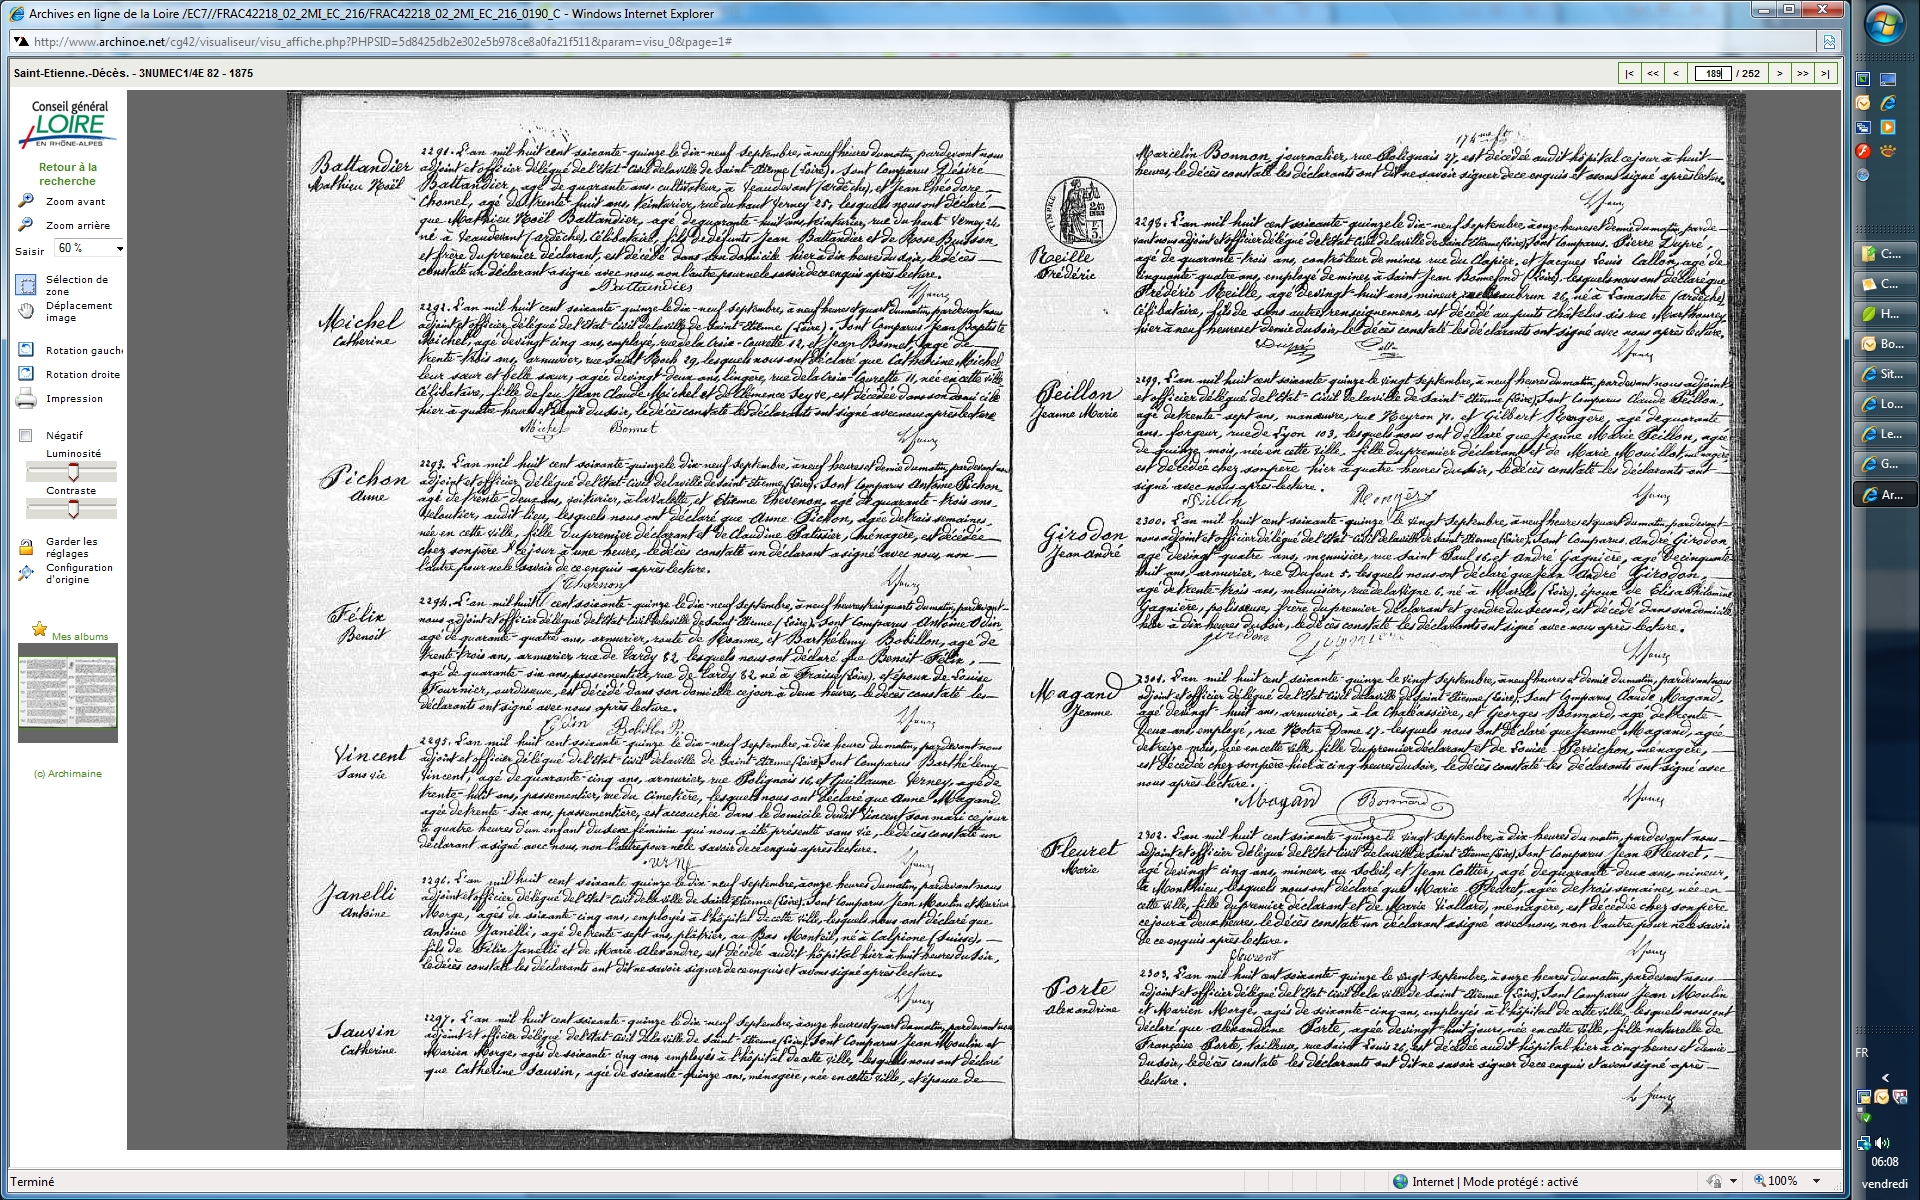 Archives en ligne de la Loire /EC7//FRAC42218_02_2MI_EC_216/FRAC42218_02_2MI_EC_216_0190_C - Windows Internet Explorer
http://www.archinoe.net/cg42/visualiseur/visu_affiche.php?PHPSID=5d8425db2e302e5b978ce8a0fa21f511&param=visu_0&page=1#
Saint-Etienne.-Décès. - 3NUMEC1/4E 82 - 1875
|< << < 189 / 252 > >> >|
Conseil général
LOIRE
EN RHÔNE-ALPES
Retour à la
recherche
Zoom avant
Zoom arrière
Saisir 60 %
Sélection de
zone
Déplacement
image
Rotation gauche
Rotation droite
Impression
Négatif
Luminosité
Contraste
Garder les
réglages
Configuration
d'origine
Mes albums
(c) Archimaine
Battandier
Mathieu Noël
2291. L'an mil huit cent soixante-quinze le dix-neuf Septembre, à neuf heures du matin, pardevant nous
adjoint et officier délégué de l'Etat-Civil de la ville de Saint-Etienne (Loire). Sont comparus Désiré
Battandier, agé de quarante ans, cultivateur, à Veaudevant (ardèche), et Jean Théodore
Chomel, agé de trente-huit ans, teinturier, rue du haut Verney 25, lesquels nous ont déclaré
que Mathieu Noël Battandier, agé de quarante-huit ans, teinturier, rue du haut Verney 24,
né à Veaudevant (ardèche), Célibataire, fils de défunts Jean Battandier et de Rose Buisson,
et frère du premier déclarant, est décédé dans son domicile hier à dix heures du soir, le décès
constaté un déclarant a signé avec nous, non l'autre pour ne le savoir de ce enquis après lecture.
Battandier
Michel
Catherine
2292. L'an mil huit cent soixante-quinze le dix-neuf Septembre, à neuf heures et quart du matin, pardevant nous
adjoint et officier délégué de l'Etat-Civil de la ville de Saint-Etienne (Loire). Sont Comparus Jean Baptiste
Michel, agé de vingt cinq ans, employé, rue de la Croix-Courette 12, et Jean Bonnet, agé de
trente-trois ans, armurier, rue Saint Roch 29, lesquels nous ont déclaré que Catherine Michel
leur sœur et belle sœur, agée de vingt-deux ans, lingère, rue de la Croix-Courette 11, née en cette ville,
Célibataire, fille de feu Jean Claude Michel et de Clémence Seyve, est décédée dans son domicile
hier à quatre heures et demie du soir, le décès constaté les déclarants ont signé avec nous après lecture
Michel Bonnet
Pichon
Anne
2293. L'an mil huit cent soixante-quinze le dix-neuf Septembre, à neuf heures et demie du matin, pardevant nous
adjoint et officier délégué de l'Etat-Civil de la ville de Saint-Etienne (Loire). Sont Comparus Antoine Pichon,
agé de trente-deux ans, voiturier, à la Valette, et Etienne Thevenon, agé de quarante-trois ans
veloutier, audit lieu, lesquels nous ont déclaré que Anne Pichon, agée de trois semaines,
née en cette ville, fille du premier déclarant et de Claudine Patissier, ménagère, est décédée
chez son père ce jour à une heure, le décès constaté un déclarant a signé avec nous, non
l'autre pour ne le savoir de ce enquis après lecture.
Thevenon
Félix
Benoit
2294. L'an mil huit cent soixante-quinze le dix-neuf Septembre, à neuf heures trois quarts du matin, pardevant
nous adjoint et officier délégué de l'Etat-Civil de la ville de Saint-Etienne (Loire). Sont Comparus Antoine Odin
agé de quarante-quatre ans, armurier, route de Roanne, et Barthélemy Bobillon, agé de
trente-trois ans, armurier rue de Tardy 82, lesquels nous ont déclaré que Benoit Félix,
agé de quarante-six ans, passementier, rue de Tardy 82, né à Fraisse (Loire), et époux de Louise
Fournier, ourdisseuse, est décédé dans son domicile ce jour à deux heures, le décès constaté les
déclarants ont signé avec nous après lecture.
Odin Bobillon
Vincent
Sans vie
2295. L'an mil huit cent soixante-quinze le dix-neuf Septembre, à dix heures du matin, pardevant nous
adjoint et officier délégué de l'Etat-Civil de la ville de Saint-Etienne (Loire) Sont Comparus Barthélemy
Vincent, agé de quarante-cinq ans, armurier, rue Polignais 16, et Guillaume Verney, agé de
trente-huit ans, passementier, rue du Cimetière, lesquels nous ont déclaré que Anne Magand
agée de trente-six ans, passementière, est accouchée dans le domicile dudit Vincent son mari ce jour
à quatre heures d'un enfant du sexe féminin qui nous a été présenté sans vie, le décès constaté un
déclarant a signé avec nous, non l'autre pour ne le savoir de ce enquis après lecture.
Janelli
Antoine
2296. L'an mil huit cent soixante quinze le dix-neuf Septembre, à onze heures du matin, pardevant nous
adjoint et officier délégué de l'Etat-Civil de la ville de Saint-Etienne (Loire). Sont Comparus Jean Moulin et Marien
Morge, agés de soixante-cinq ans, employés à l'hôpital de cette ville, lesquels nous ont déclaré que
Antoine Janelli, agé de trente-sept ans, platrier, au Bas Monteil, né à Calpione (Suisse),
fils de Félix Janelli et de Marie Alexandre, est décédé audit hôpital hier à huit heures du soir,
le décès constaté les déclarants ont dit ne savoir signer de ce enquis et avons signé après lecture.
Sauvin
Catherine
2297. L'an mil huit cent soixante-quinze le dix-neuf Septembre, à onze heures et quart du matin, pardevant nous
adjoint et officier délégué de l'Etat Civil de la ville de Saint-Etienne (Loire). Sont Comparus Jean Moulin et
Marien Morge, agés de soixante cinq ans employés à l'hôpital de cette ville, lesquels nous ont déclaré
que Catherine Sauvin, agée de soixante-quinze ans, ménagère, née en cette ville, et épouse de
Marcelin Bonnon, journalier, rue Polignais 27, est décédée audit hôpital ce jour à huit
heures, le décès constaté les déclarants ont dit ne savoir signer de ce enquis et avons signé après lecture.
Reille
Frédéric
2298. L'an mil huit cent soixante-quinze le dix-neuf Septembre, à onze heures et demie du matin, parde-
vant nous adjoint et officier délégué de l'Etat Civil de la ville de Saint-Etienne (Loire) Sont Comparus Pierre Dupré,
agé de quarante-trois ans, contrôleur de mines rue du Clapier, et Jacques Louis Callon, agé de
cinquante-quatre ans, employé de mines à Saint Jean Bonnefond (Loire), lesquels nous ont déclaré que
Frédéric Reille, agé de vingt huit ans, mineur, Beaubrun 26, né à Lamastre (ardèche)
Célibataire, fils de sans autre renseignemens, est décédé au puits Châtelus sis rue Marthourey
hier à neuf heures et demie du soir, le décès constaté les déclarants ont signé avec nous après lecture.
Dupré
Peillon
Jeanne Marie
2299. L'an mil huit cent soixante quinze le vingt Septembre, à neuf heures du matin, pardevant nous adjoint
et officier délégué de l'Etat-Civil de la ville de Saint-Etienne (Loire). Sont Comparus Claude Peillon,
agé de trente-sept ans, manœuvre, rue Neyron 71, et Gilbert Rongère, agé de quarante
ans, forgeur, rue de Lyon 103, lesquels nous ont déclaré que Jeanne Marie Peillon, agée
de quinze mois, née en cette ville, fille du premier déclarant et de Marie Mouillot, ménagère
est décédée chez son père hier à quatre heures du soir, le décès constaté les déclarants ont
signé avec nous après lecture.
Peillon Rongère
Girodon
Jean André
2300. L'an mil huit cent soixante-quinze le vingt Septembre, à neuf heures et quart du matin, pardevant
nous adjoint et officier délégué de l'Etat Civil de la ville de Saint-Etienne (Loire). Sont Comparus André Girodon
agé de vingt-quatre ans, menuisier, rue Saint Paul 16, et André Gagnière, agé de cinquante
huit ans, armurier, rue Dufour 5, lesquels nous ont déclaré que Jean André Girodon,
agé de trente-trois ans, menuisier, rue de la Vigne 6, né à Marols (Loire), époux de Elisa Philomène
Gagnière, polisseuse, frère du premier déclarant et gendre du second, est décédé dans son domicile
hier à dix heures du soir, le décès constaté les déclarants ont signé avec nous après lecture.
Girodon Gagnière
Magand
Jeanne
2301. L'an mil huit cent soixante-quinze le vingt Septembre, à neuf heures et demie du matin, pardevant nous
adjoint et officier délégué de l'Etat-Civil de la ville de Saint-Etienne (Loire). Sont Comparus Claude Magand,
agé de vingt-huit ans, armurier, à la Chaléassière, et Georges Bonnard, agé de trente-
deux ans, employé, rue Notre-Dame 17, lesquels nous ont déclaré que Jeanne Magand, agée
de treize mois, née en cette ville, fille du premier déclarant et de Louise Perrichon, ménagère,
est décédée chez son père hier à cinq heures du soir, le décès constaté les déclarants ont signé avec
nous après lecture.
Magand Bonnard
Fleuret
Marie
2302. L'an mil huit cent soixante-quinze le vingt Septembre, à dix heures du matin, pardevant nous
adjoint et officier délégué de l'Etat Civil de la ville de Saint-Etienne (Loire). Sont Comparus Jean Fleuret,
agé de vingt cinq ans, mineur, au Soleil, et Jean Cottier, agé de quarante-deux ans, mineur,
à Monthieu, lesquels nous ont déclaré que Marie Fleuret, agée de trois semaines, née en
cette ville, fille du premier déclarant et de Marie Viallard, ménagère, est décédée chez son père
ce jour à deux heures, le décès constaté un déclarant a signé avec nous, non l'autre pour ne le savoir
de ce enquis après lecture.
Porte
Alexandrine
2303. L'an mil huit cent soixante-quinze le vingt Septembre, à onze heures du matin, pardevant nous
adjoint et officier délégué de l'Etat Civil de la ville de Saint-Etienne (Loire). Sont Comparus Jean Moulin
et Marien Morge, agés de soixante-cinq ans, employés à l'hôpital de cette ville, lesquels nous ont
déclaré que Alexandrine Porte, agée de vingt huit jours, née en cette ville, fille naturelle de
Françoise Porte, tailleuse, rue Saint Louis 26, est décédée audit hôpital hier à cinq heures et demie
du soir, le décès constaté les déclarants ont dit ne savoir signer de ce enquis et avons signé après
lecture.
Terminé
Internet | Mode protégé : activé
100%
C...
C...
H...
Bo...
Sit...
Lo...
Le...
G...
Ar...
FR
06:08
vendredi